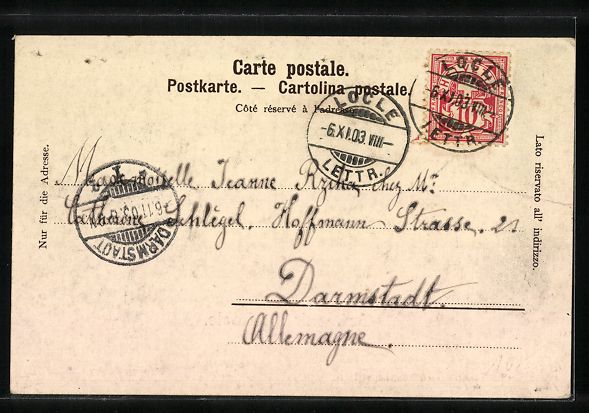 Carte postale.
Postkarte. — Cartolina postale.
Côté réservé à l'adresse.
LOCLE
6.XI.03.VIII—
LETTR.
LOCLE
6.XI.03.
LETTR.
10
Nur für die Adresse.
Lato riservato all' indirizzo.
Mademoiselle Jeanne chez Mr
Schlégel. Hoffmann-Strasse. 21
Darmstadt.
Allemagne.
DARMSTADT